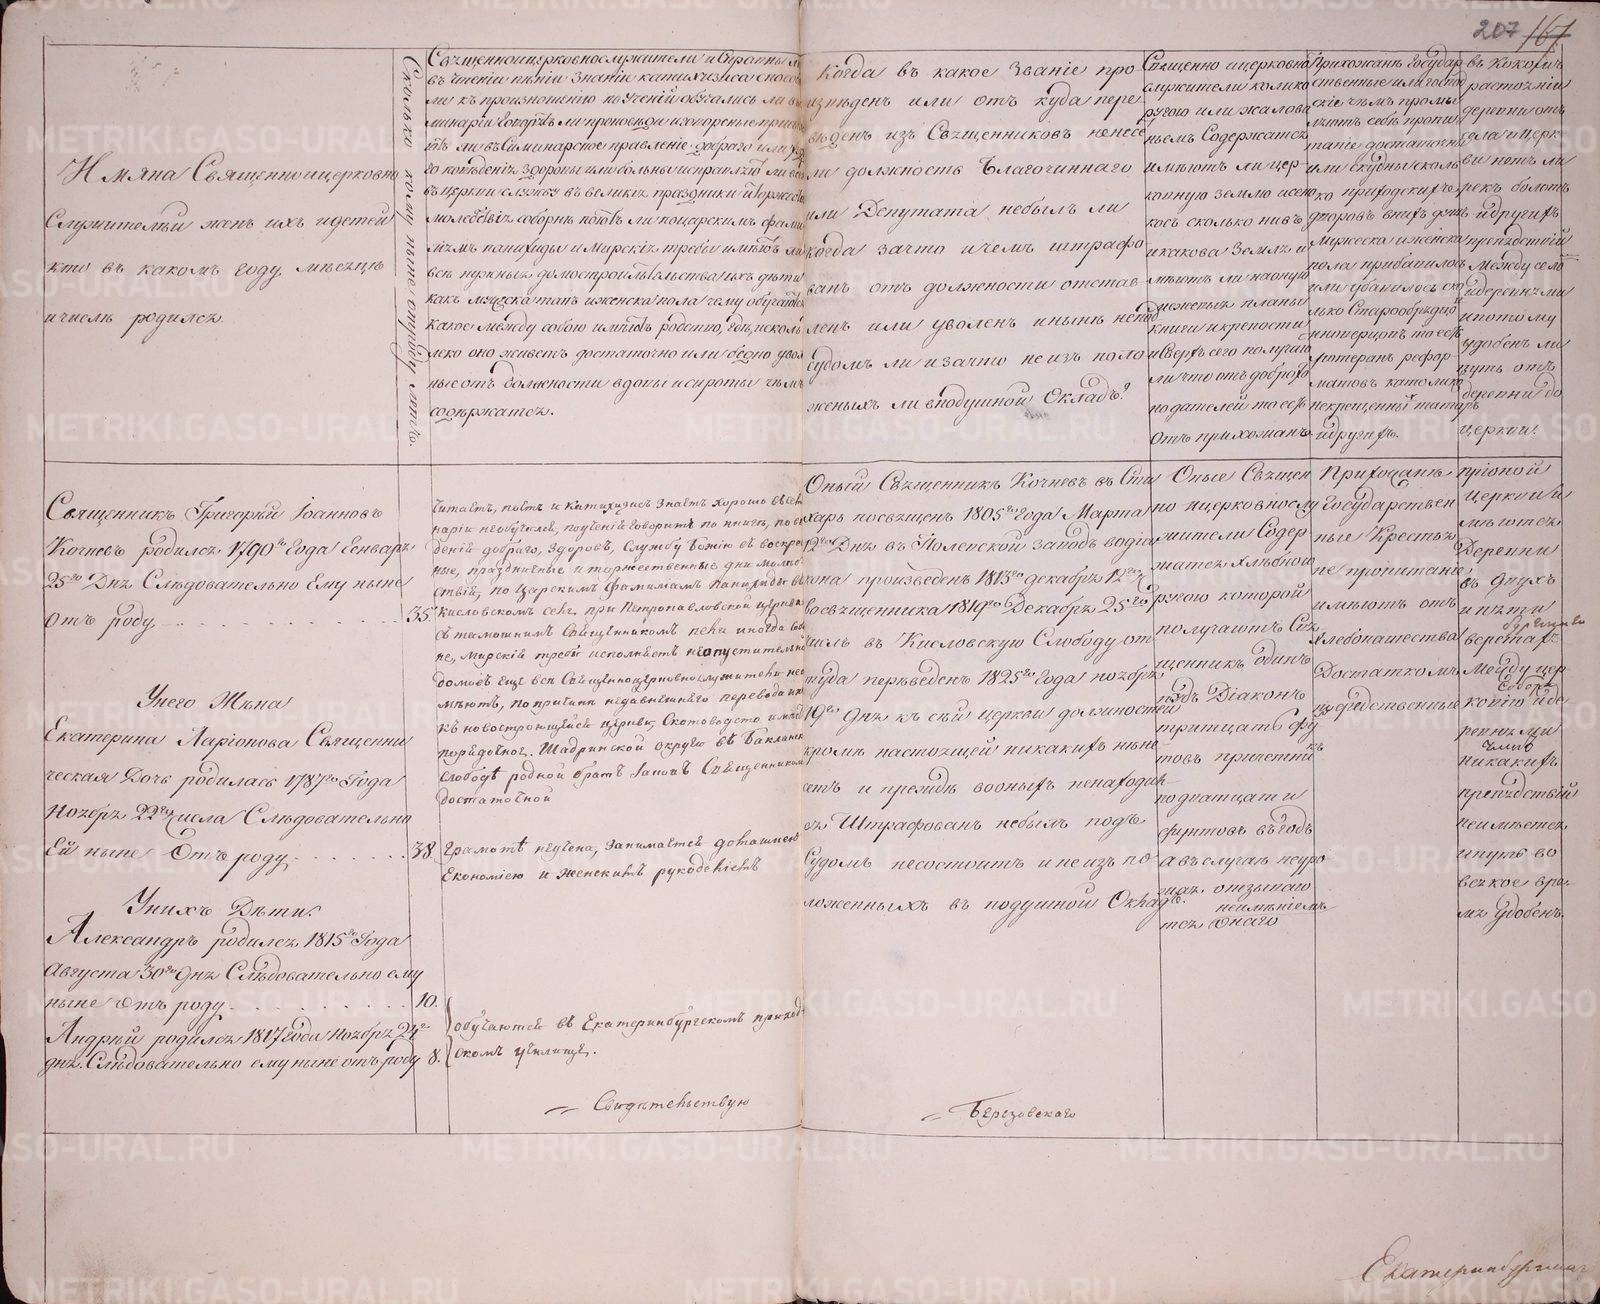 207 167
Имяна Священно и церковно
Служителѣй женъ ихъ и детей
кто въ какомъ году мѣсяцѣ
и числѣ родился.
Сколько коли ныне отъ роду лѣтъ.
Священноицерковнослужители и
въ чтеніи пѣніи знаніи катихизиса
ли къ произношенію поученій обучались ли
въ Семинарское правленіе доброго или
го поведенія здоровы или больны исправляютъ ли
въ церкви службу въ великія праздники и
молебствія соборнѣ поютъ ли по царскимъ
панахиды и мирскія требы имѣютъ ли
всѣ нужныя домостроительства ихъ дѣти
какъ мужеска такъ и женска пола чему обучаются
какое между собою имѣютъ родство, гдѣ, и сколь
леко оно живетъ достаточно или бедно
ные отъ должности вдовы и сироты чѣмъ
содержатся.
Когда въ какое Званіе про
изведенъ или отъ куда пере-
вѣденъ изъ Священниковъ не несе
ли должность Благочиннаго
или Депутата небылъ ли
когда за что и чемъ штрафо
ванъ отъ должности отстав
ленъ или уволенъ и нынѣ не подъ
судомъ ли и за что не изъ поло
женыхъ ли в подушной Окладъ?
Священно и церковно
служители колико
ругою или жалова
ньемъ Содержатся
имѣютъ ли цер-
ковную землю и сено
кос сколько нивъ
и какова Земля и
имѣютъ ли на оную
межевыя планы
книги и крепости
и сверхъ сего получаю
ли что отъ доброхо
подателей то есть
отъ прихожанъ.
Прихожанѣ Государ
ственные или господ
скіе чѣмъ промы
шляютъ себѣ пропи
таніе достаточны
или скудны сколь
ко приходскихъ
дворовъ в нихъ душъ
мужеска и женска
пола прибавилось
или убавилось ско
лько Старообрядцо
иноверцовъ то есть
лютеранъ рефор-
матовъ католико
некрещенныхъ татаръ
и другихъ.
въ Коколи
разстояніи
деревни отъ
села и церк
ви нетъ ли
рекъ болотъ
и другихъ
препядствій
между селом
и деревнями
и потому
удобенъ ли
путь отъ
деревни до
церкви.
Священникъ Григорій Іоанновъ
Кочневъ родился 1790го Года Генваря
25го Дня Слѣдовательно Ему ныне
Отъ роду 35.
Читаетъ, поетъ и Катихизисъ Знаетъ хорошо въ Семи
наріи необучался, поученій Говоритъ по книгѣ, по
деній доброго, здоровъ, Службу Божію въ воскре
ные, праздничные и торжественные дни молеб
ствій, по Царскимъ Фамиліямъ Панихиды въ
Кисловскомъ селѣ при Петропавловской церкви
съ тамошнимъ Священникомъ
не, Мирскія требы исполняетъ неопустительно
домовъ еще всѣ Священноцерковнослужители не
мѣютъ, по причинѣ недавнешняго перевода ихъ
къ новостроющейся церкви, Скотоводство имѣетъ
порядочное. Шадринской округи въ Бакланск
слободѣ родной братъ Іаковъ Священникомъ
достаточной
Оный Священникъ Кочневъ въ Сти
харь посвященъ 1805го Года Марта
12го Дня въ Юленской заводъ во діа
кона произведенъ 1813го декабря 12го
во священника 1819го Декабря 25го
числъ въ Кисловскую Слободу от
туда перевѣденъ 1825го Года ноября
19го Дня къ сей церкви должности
кромѣ настоящей никакихъ не не-
сетъ и прежде во оныхъ не находил
ся Штрафованъ небылъ подъ
Судомъ несостоитъ и не изъ по-
ложенныхъ въ подушной Окладъ.
Оные Священ
но и церковнослу
жители Содер
жатся хлѣбною
ругою которой
получаютъ Свя
щенникъ Одинъ
пудъ Діаконъ
тритцать фу
товъ причетник
по дватцати
фунтовъ въ годъ
а въ случаю неуро
жая отзываю
неимѣніемъ
тся Онаго
Прихожанѣ
Государствен
ные Крестья
не пропитаніе
имѣютъ отъ
хлебопашества
Достаткомъ
посредственные
При оной
церкви и
имѣются
Деревни
въ двухъ
и пяти
верстахъ
Между цер-
ковію и де-
ревнями
никакихъ
препядствій
неимѣется
и путь во
всякое вре-
мя удобенъ.
У него Жена
Екатерина Ларіонова Священни
ческая Дочь родилась 1787го Года
Ноября 22го числа Слѣдовательно
Ей ныне Отъ роду 38.
Грамотѣ неучена, Занимается домашнею
Економіею и женскимъ рукодѣліемъ
У нихъ Дѣти:
Александръ родился 1815го Года
Августа 30го дня Слѣдовательно ему
ныне Отъ роду 10.
Андрей родился 1817 Года Ноября 24го
дня. Слѣдовательно ему ныне отъ роду 8.
обучаются въ Екатеринбургскомъ приход-
скомъ училищѣ.
Свидѣтельствую
Березовскаго